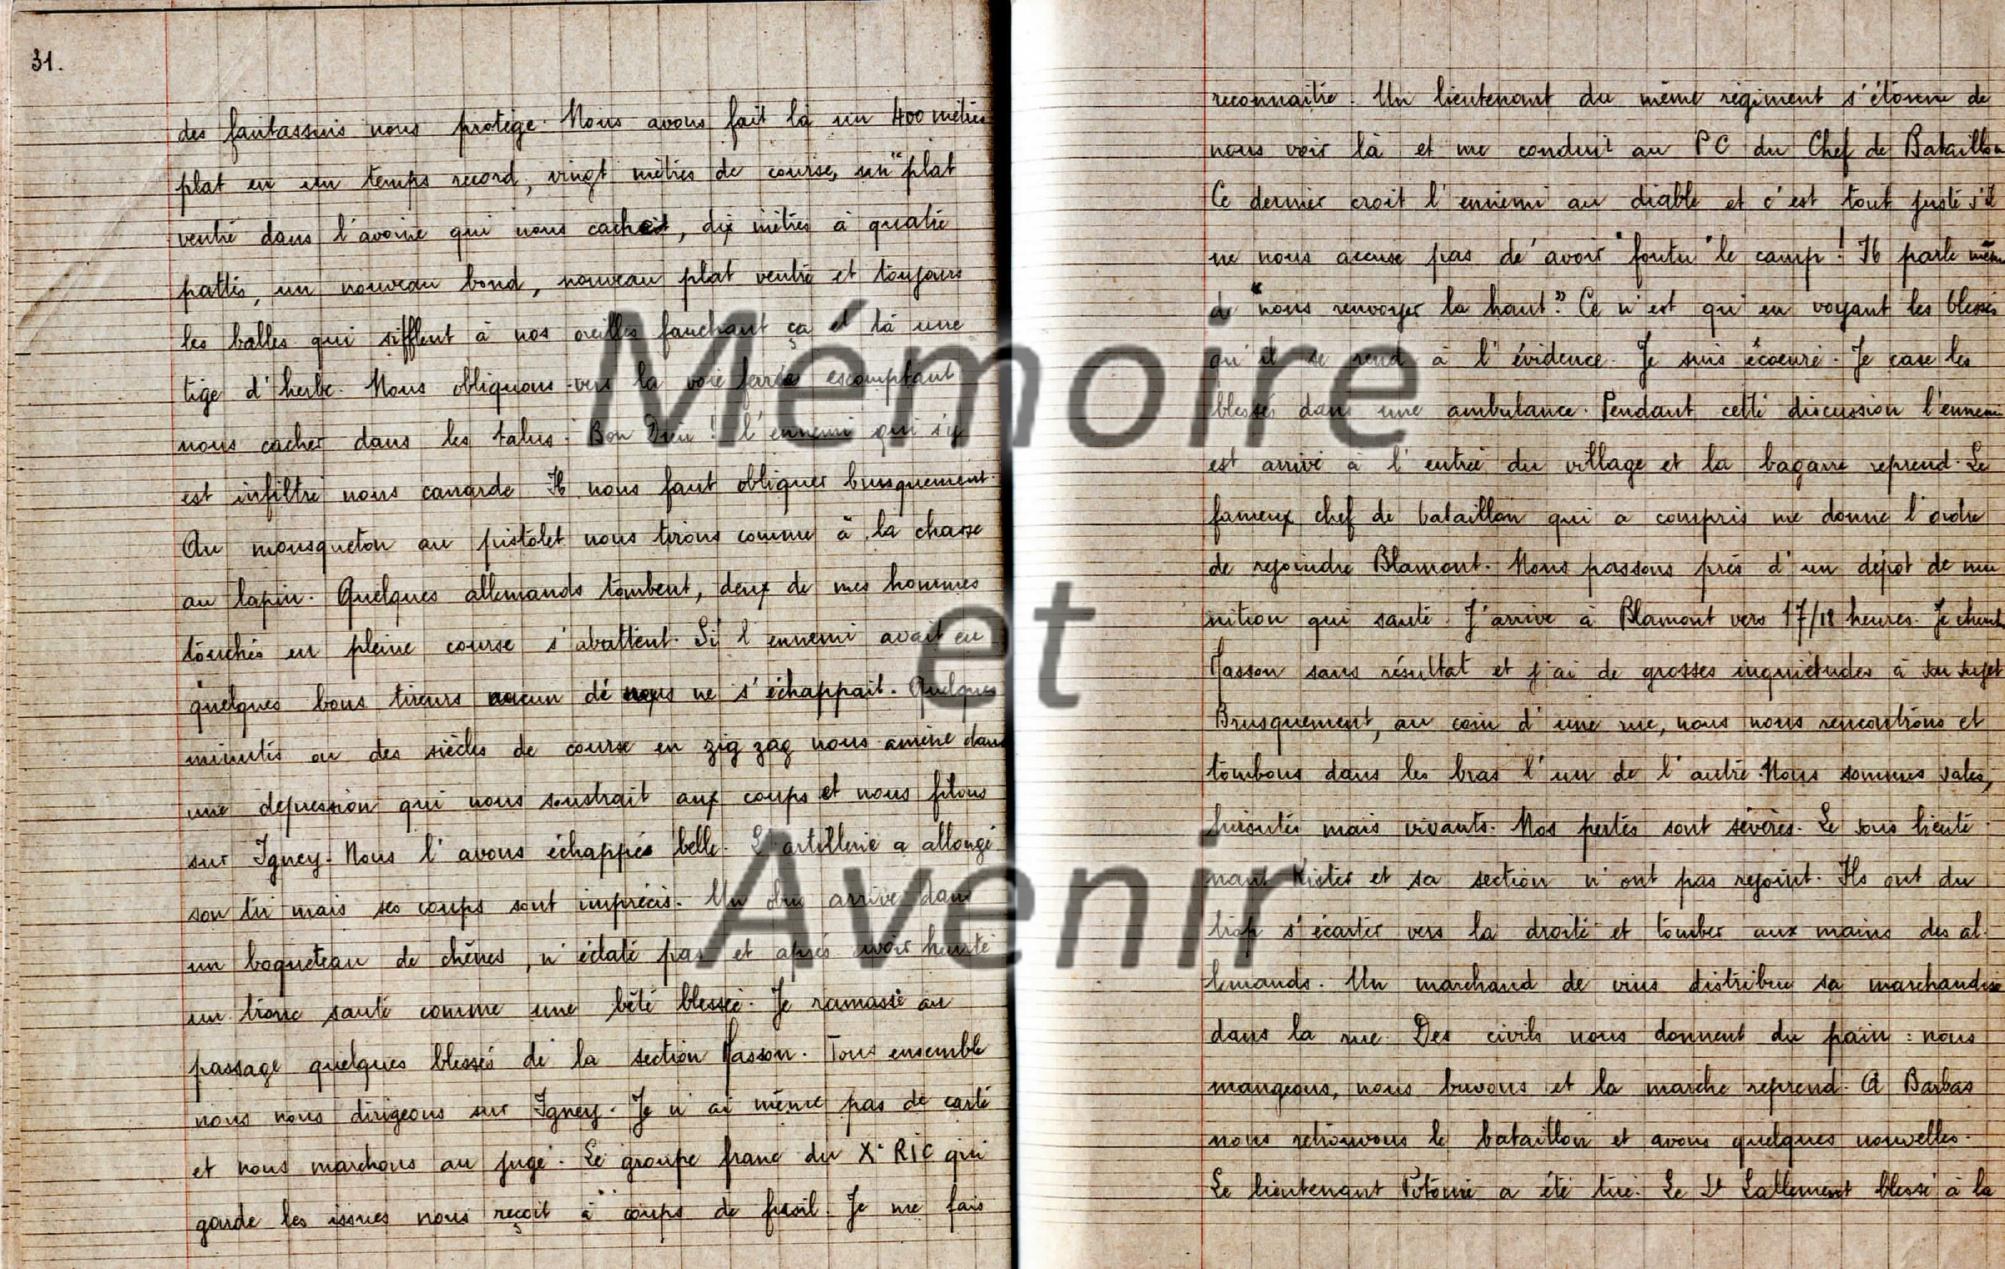 31.
des fantassins nous protège. Nous avons fait là un 400 mètres
plat en un temps record, vingt mètres de course, un "plat
ventre dans l'avoine qui nous cachait, dix mètres à quatre
pattes, un nouveau bond, nouveau plat ventre et toujours
les balles qui sifflent à nos oreilles fauchant ça et là une
tige d'herbe. Nous obliquons vers la voie ferrée escomptant
nous cacher dans les talus. Bon Dieu ! l'ennemi qui s'y
est infiltré nous canarde Il nous faut obliquer brusquement.
Au mousqueton au pistolet nous tirons comme à la chasse
au lapin. Quelques allemands tombent, deux de mes hommes
touchés en pleine course s'abattent. Si l'ennemi avait eu
quelques bons tireurs aucun de nous ne s'échappait. Quelques
minutes ou des siècles de course en zig zag nous amène dans
une dépression qui nous soustrait aux coups et nous filons
sur Igney. Nous l'avons échappés belle. L'artillerie a allongé
son tir mais ses coups sont imprécis. Un obus arrive dans
un boqueteau de chênes, n'éclate pas et après avoir heurté
un tronc saute comme une bête blessée. Je ramasse au
passage quelques blessés de la section Masson. Tous ensemble
nous nous dirigeons sur Igney. Je n'ai même pas de carte
et nous marchons au jugé. Le groupe franc du X° RIC qui
garde les issues nous reçoit à coups de fusil. Je me fais
reconnaitre. Un lieutenant du même régiment s'étonne de
nous voir là et me conduit au PC du Chef de Bataillon
Ce dernier croit l'ennemi au diable et c'est tout juste s'il
ne nous accuse pas de d'avoir "foutu" le camp ! Il parle même
de "nous renvoyer la haut". Ce n'est qu'en voyant les blessés
qu'il se rend à l'évidence. Je suis écoeuré. Je case les
blessés dans une ambulance. Pendant cette discussion l'ennemi
est arrivé à l'entrée du village et la bagarre reprend. Le
fameux chef de bataillon qui a compris me donne l'ordre
de rejoindre Blamont. Nous passons près d'un dépot de mu
nition qui saute. J'arrive à Blamont vers 17/18 heures. Je cherche
Masson sans résultat et j'ai de grosses inquiétudes à son sujet
Brusquement, au coin d'une rue, nous nous rencontrons et
tombons dans les bras l'un de l'autre. Nous sommes sales,
mais vivants. Nos pertes sont sévères. Le sous lieute
nant Kister et sa section n'ont pas rejoint. Ils ont du
trop s'écarter vers la droite et tomber aux mains des al
lemands. Un marchand de vins distribue sa marchandise
dans la rue. Des civils nous donnent du pain : nous
mangeons, nous buvons et la marche reprend. A Barbas
nous retrouvons le bataillon et avons quelques nouvelles.
Le lieutenant a été tué. Le Lt Lallement blessé à la
Mémoire
et
Avenir